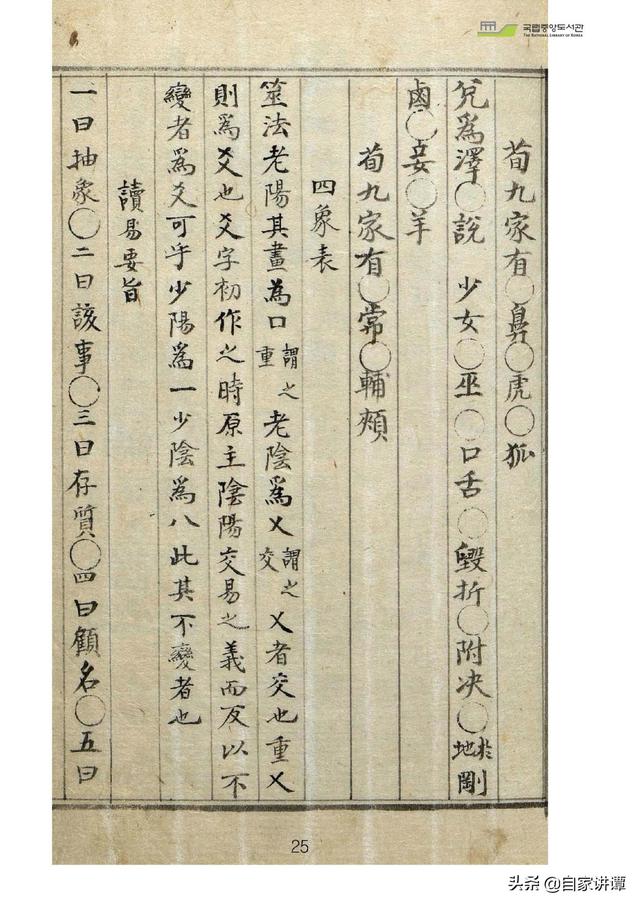 국립중앙도서관
THE NATIONAL LIBRARY OF KOREA
荀九家有〇鼻〇虎〇狐
兊爲澤〇說 少女〇巫〇口舌〇毀折〇附决〇於地剛
鹵〇妾〇羊
荀九家有〇常〇輔頰
四象表
筮法老陽其畫爲口謂之重老陰爲乂謂之交乂者交也重乂
則爲爻也爻字初作之時原主陰陽交易之義而反以不
變者爲爻可乎少陽爲一少陰爲八此其不變者也
讀易要旨
一曰抽象〇二曰該事〇三曰存質〇四曰顧名〇五曰
25
头条 @自家讲谭